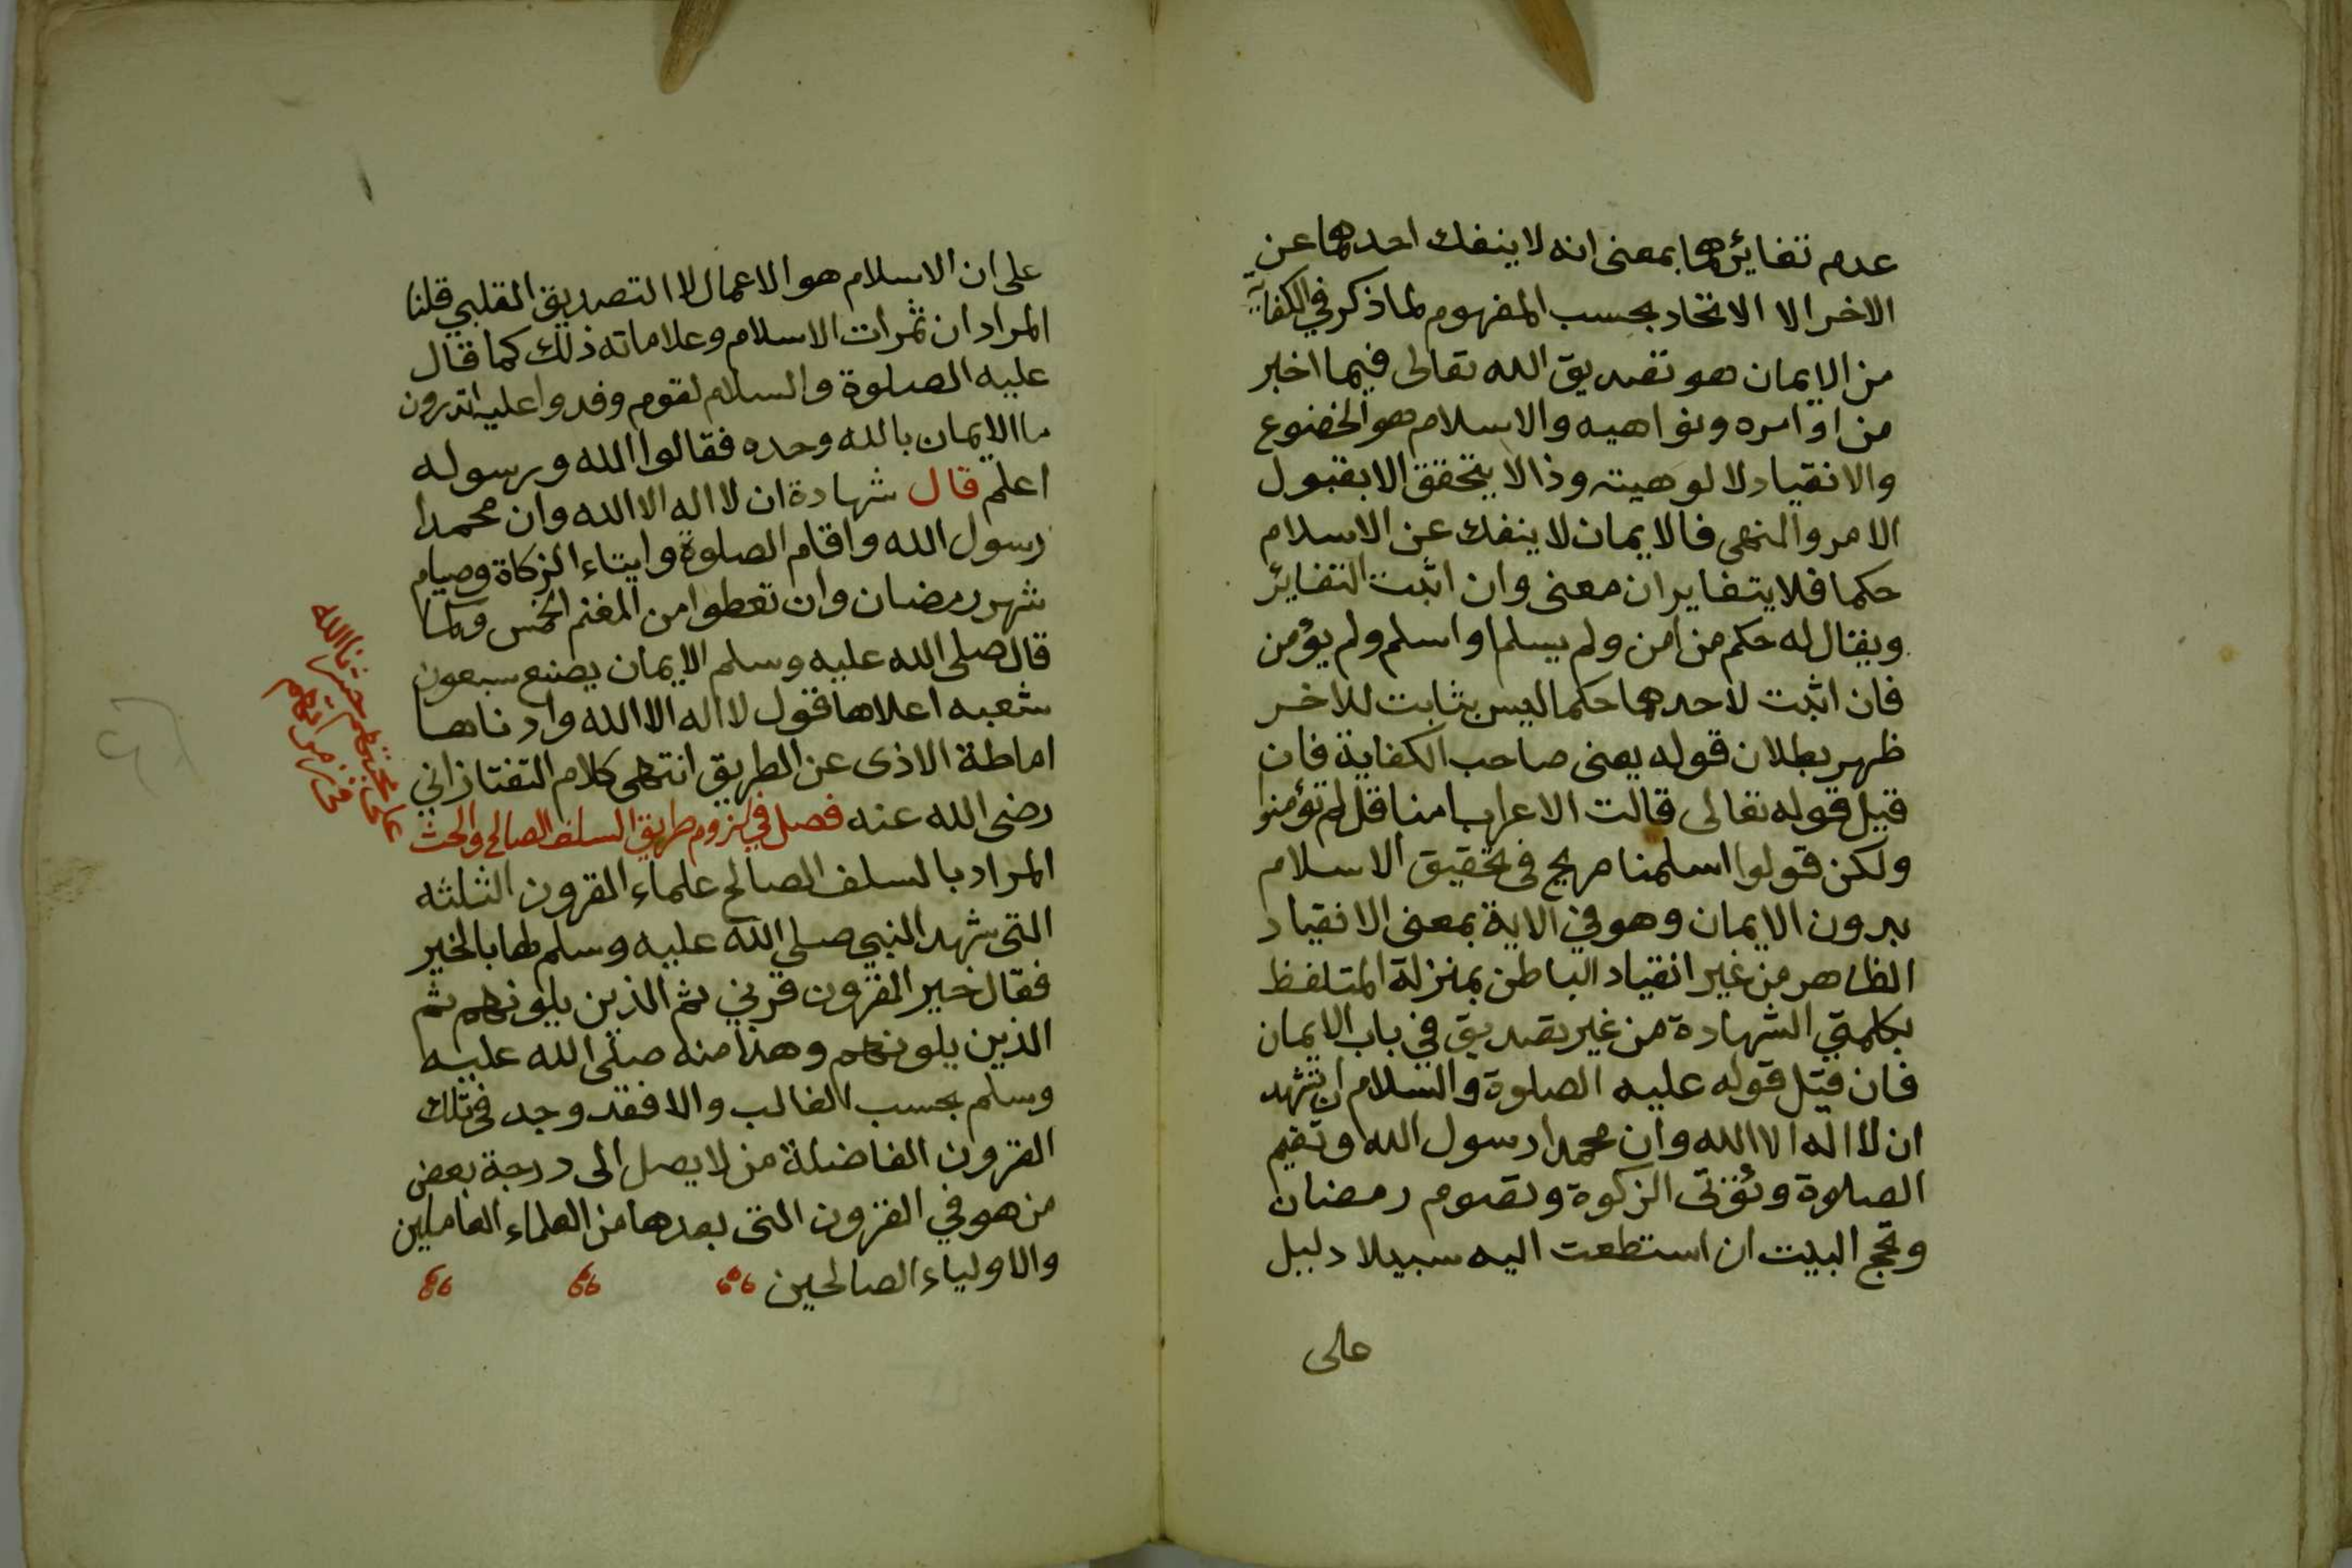 عدم تغايرهما بمعنى انه لا ينفك احدهما عن
الاخر الا الاتحاد بحسب المفهوم لما ذكر في الكفاية
من الايمان هو تصديق الله تعالى فيما اخبر
من اوامره ونواهيه والاسلام هو الخضوع
والانقياد لالوهيته وذا لا يتحقق الا بقبول
الامر والنهى فالايمان لا ينفك عن الاسلام
حكما فلا يتغايران معنى وان اثبت التغاير
ويقال له حكم من امن ولم يسلم او اسلم ولم يؤمن
فان اثبت لاحدهما حكما ليس بثابت للاخر
ظهر بطلان قوله يعنى صاحب الكفاية فان
قيل قوله تعالى قالت الاعراب امنا قل لم تؤمنوا
ولكن قولوا اسلمنا صريح فى تحقيق الاسلام
بدون الايمان وهو في الاية بمعنى الانقياد
الظاهر من غير انقياد الباطن بمنزلة المتلفظ
بكلمتي الشهادة من غير تصديق في باب الايمان
فان قيل قوله عليه الصلوة والسلام ان تشهد
ان لا اله الا الله وان محمدا رسول الله وتقيم
الصلوة وتؤتى الزكوة وتصوم رمضان
وتحج البيت ان استطعت اليه سبيلا دليل
على
على ان الاسلام هو الاعمال لا التصديق القلبي قلنا
المراد ان ثمرات الاسلام وعلاماته ذلك كما قال
عليه الصلوة والسلام لقوم وفدوا عليه اتدرون
ما الايمان بالله وحده فقالوا الله ورسوله
اعلم قال شهادة ان لا اله الا الله وان محمدا
رسول الله واقام الصلوة وايتاء الزكاة وصيام
شهر رمضان وان تعطوا من المغنم الخمس وكما
قال صلى الله عليه وسلم الايمان بضع سبعون
شعبه اعلاها قول لا اله الا الله وادناها
اماطة الاذى عن الطريق انتهى كلام التفتازاني
رضى الله عنه فصل في لزوم طريق السلف الصالح والحث
على محبتهم حشرنا الله
في زمرتهم
المراد بالسلف الصالح علماء القرون الثلثه
التى شهد النبي صلى الله عليه وسلم لها بالخير
فقال خير القرون قرني ثم الذين يلونهم ثم
الذين يلونهم وهذا منه صلى الله عليه
وسلم بحسب الغالب والا فقد وجد فى تلك
القرون الفاضلة من لا يصل الى درجة بعض
من هو في القرون التى بعدها من العلماء العاملين
والاولياء الصالحين